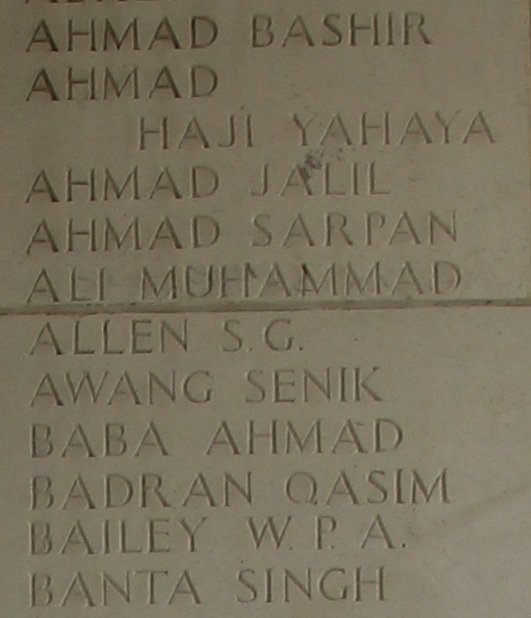 AHMAD BASHIR
AHMAD
HAJI YAHAYA
AHMAD JALIL
AHMAD SARPAN
ALI MUHAMMAD
ALLEN S.G.
AWANG SENIK
BABA AHMAD
BADRAN QASIM
BAILEY W. P. A.
BANTA SINGH